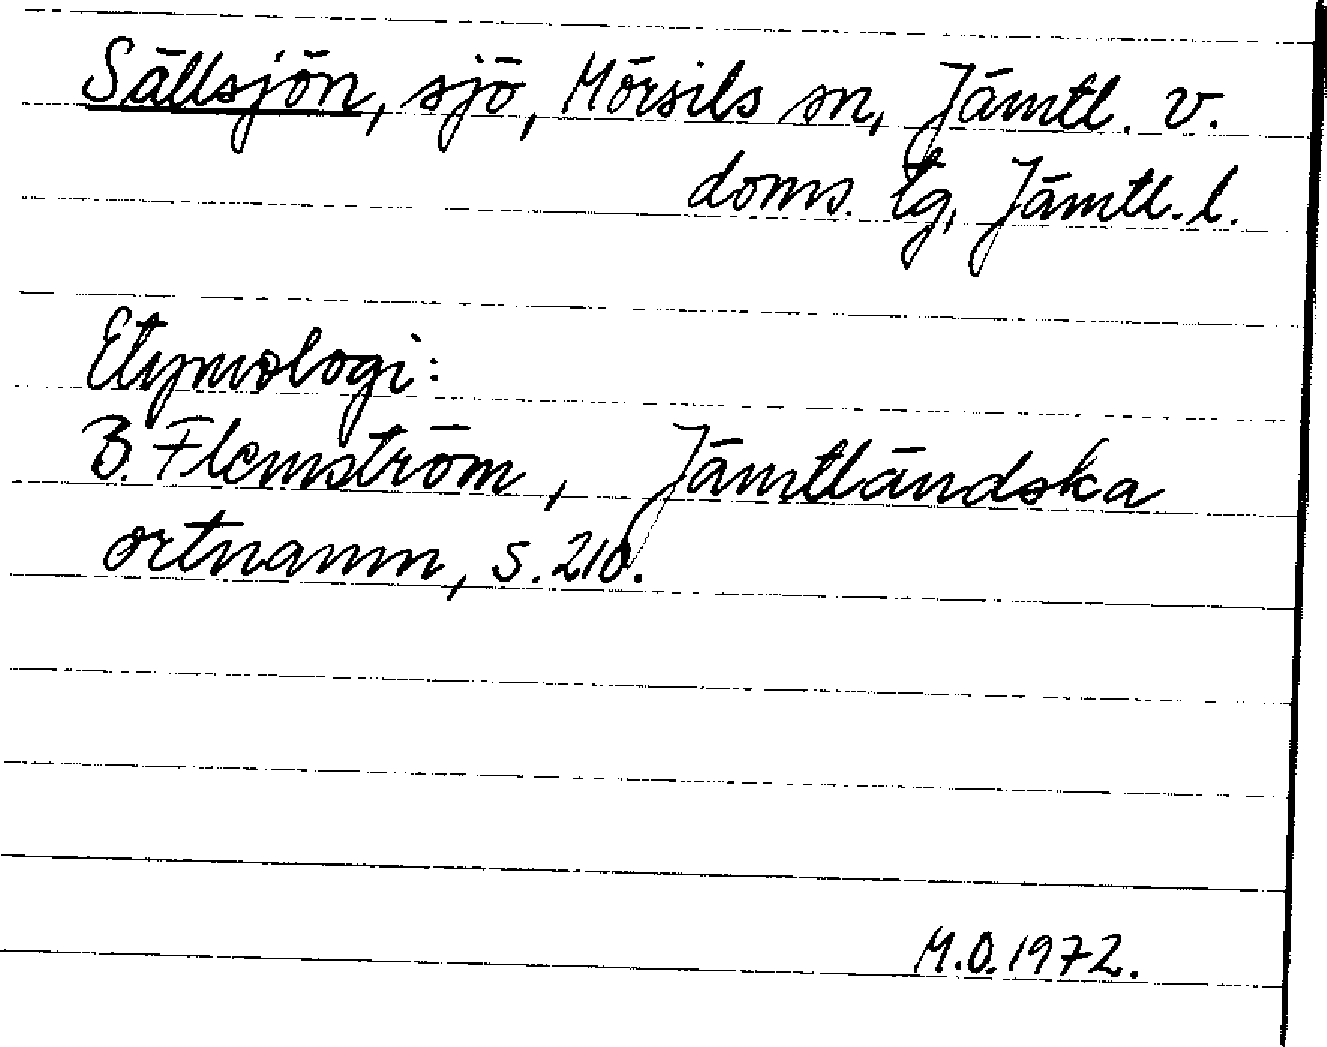 Sällsjön, sjö, Mörsils sn, Jämtl. v.
doms. tg, Jämtl. l.
Etymologi:
B. Flemström, Jämtländska
ortnamn, s. 210.
M.O. 1972.